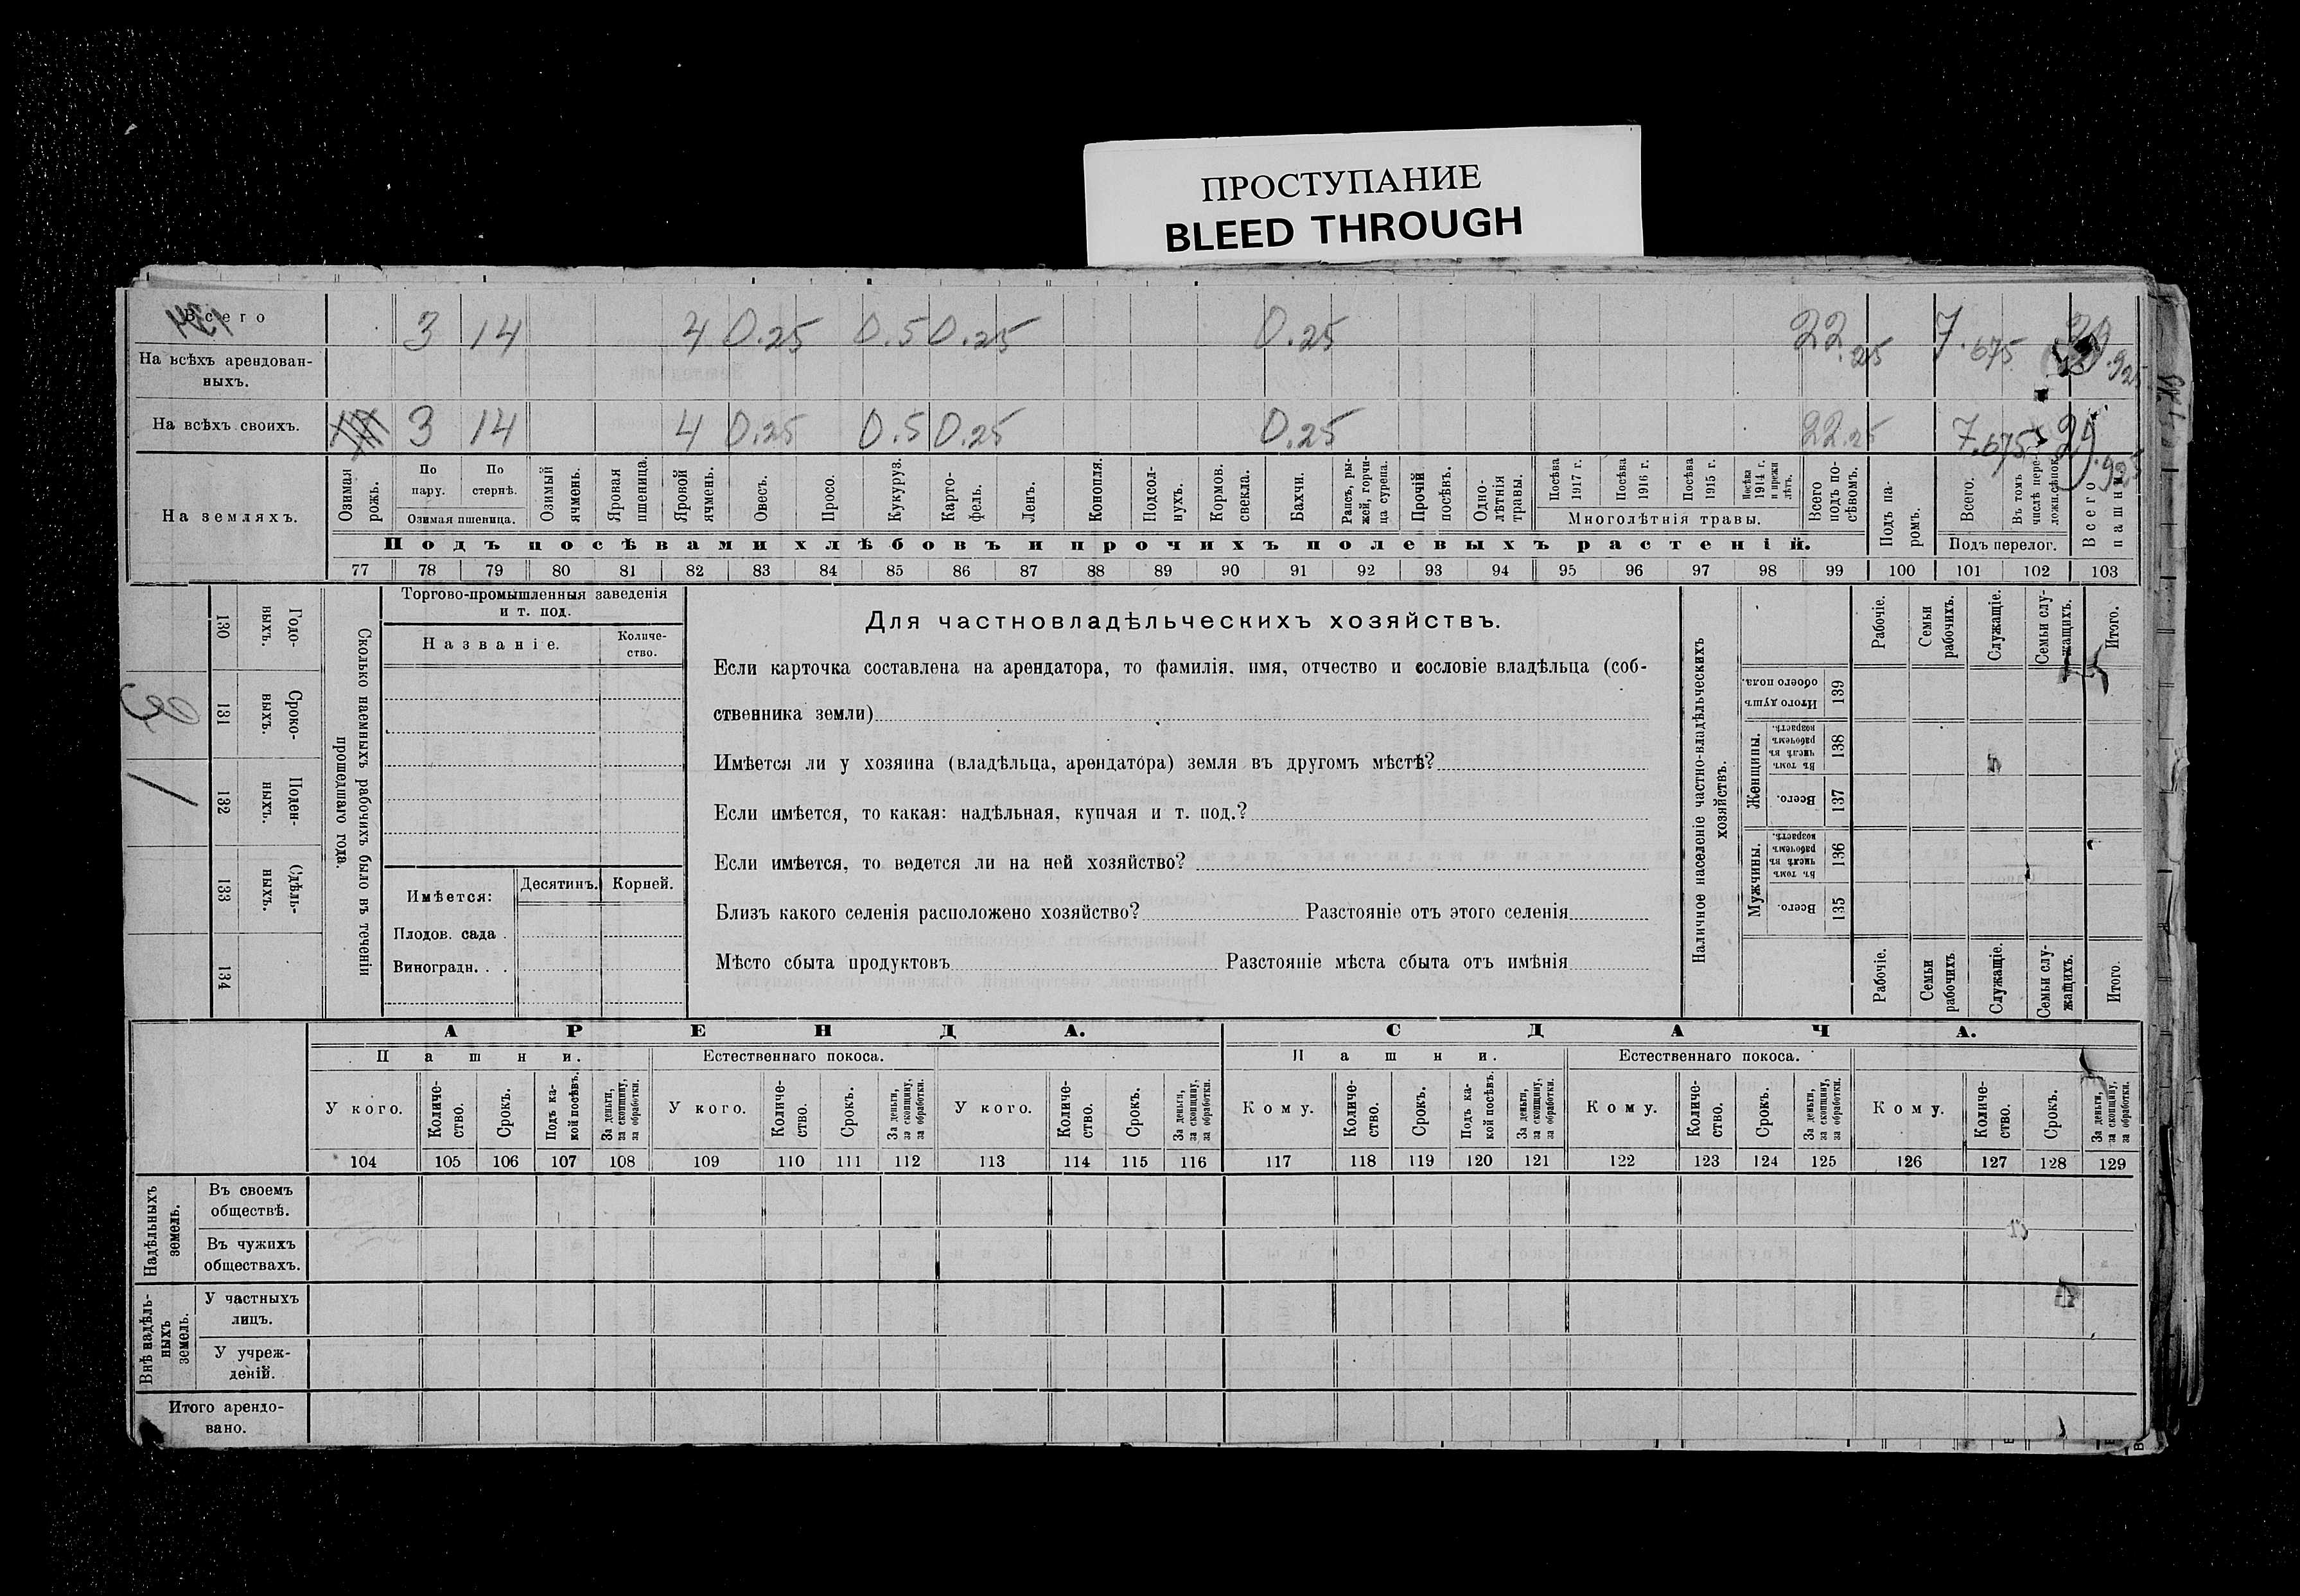 ПРОСТУПАНИЕ
BLEED THROUGH
Всего 3 14 4 0.25 0.5 0.25 0.25 22.25 7.675 29.925
На всѣхъ арендован-
ныхъ.
На всѣхъ своихъ. 3 14 4 0.25 0.5 0.25 0.25 22.25 7.675 29.925
На земляхъ.
Озимая рожь.
По пару.
По стернѣ.
Озимая пшеница.
Озимый ячмень.
Яровая пшеница.
Яровой ячмень.
Овесъ.
Просо.
Кукуруз.
Карто-
фель.
Ленъ.
Конопля.
Подсол-
нухъ.
Кормов. свекла.
Бахчи.
Рапсъ, ры-
жей, горчи-
ца сурепа.
Прочій посѣвъ.
Одно-
лѣтнія травы.
Посѣва 1917 г.
Посѣва 1916 г.
Посѣва 1915 г.
Посѣва 1914 г. и прежн лѣтъ.
Многолѣтнія травы.
Всего подъ по-
сѣвомъ.
Подъ па-
ромъ.
Всего.
Въ томъ числѣ пере-
Подъ перелог.
Всего пашни
Подъ посѣвами хлѣбовъ и прочихъ полевыхъ растеній.
77 78 79 80 81 82 83 84 85 86 87 88 89 90 91 92 93 94 95 96 97 98 99 100 101 102 103
Годо-
выхъ.
130
Сроко-
выхъ.
131
Поден-
ныхъ.
132
Сдѣль-
ныхъ.
133
134
Сколько наемныхъ рабочихъ было въ теченіи
прошедшаго года.
Торгово-промышленныя заведенія
и т. под.
Названіе.
Количе-
ство.
Имѣется:
Десятинъ. Корней.
Плодов. сада .
Виноградн. . .
Для частновладѣльческихъ хозяйствъ.
Если карточка составлена на арендатора, то фамилія, имя, отчество и сословіе владѣльца (соб-
ственника земли)
Имѣется ли у хозяина (владѣльца, арендатора) земля въ другомъ мѣстѣ?
Если имѣется, то какая: надѣльная, купчая и т. под.?
Если имѣется, то ведется ли на ней хозяйство?
Близъ какого селенія расположено хозяйство? Разстояніе отъ этого селенія
Мѣсто сбыта продуктовъ Разстояніе мѣста сбыта отъ имѣнія
Наличное населеніе частно-владѣльческихъ
хозяйствъ.
Рабочіе.
Семьи рабочихъ.
Служащіе.
Семьи слу-
жащихъ.
Итого.
Итого душъ обоего пола.
139
Женщины.
Въ томъ числѣ въ рабочемъ возрастѣ.
138
Всего.
137
Мужчины.
Въ томъ числѣ въ рабочемъ возрастѣ.
136
Всего.
135
Рабочіе.
Семьи рабочихъ
Служащіе.
Семьи слу-
жащихъ.
Итого.
АРЕНДА. СДАЧА.
Пашни. Естественнаго покоса. Пашни. Естественнаго покоса.
У кого.
Количе-
ство.
Срокъ.
Подъ ка-
кой посѣвъ.
За деньги,
за скопщину,
за обработки.
У кого.
Количе-
ство.
Срокъ.
За деньги,
за скопщину,
за обработки.
У кого.
Количе-
ство.
Срокъ.
За деньги,
за скопщину,
за обработки.
Кому.
Количе-
ство.
Срокъ.
Подъ ка-
кой посѣвъ.
За деньги,
за скопщину,
за обработки.
Кому.
Количе-
ство.
Срокъ.
За деньги,
за скопщину,
за обработки.
Кому.
Количе-
ство.
Срокъ.
За деньги,
за скопщину,
за обработки.
104 105 106 107 108 109 110 111 112 113 114 115 116 117 118 119 120 121 122 123 124 125 126 127 128 129
Надѣльныхъ
земель.
Въ своемъ
обществѣ.
Въ чужихъ
обществахъ.
Внѣ надѣль-
ныхъ
земель.
У частныхъ
лицъ.
У учреж-
деній.
Итого арендо-
вано.